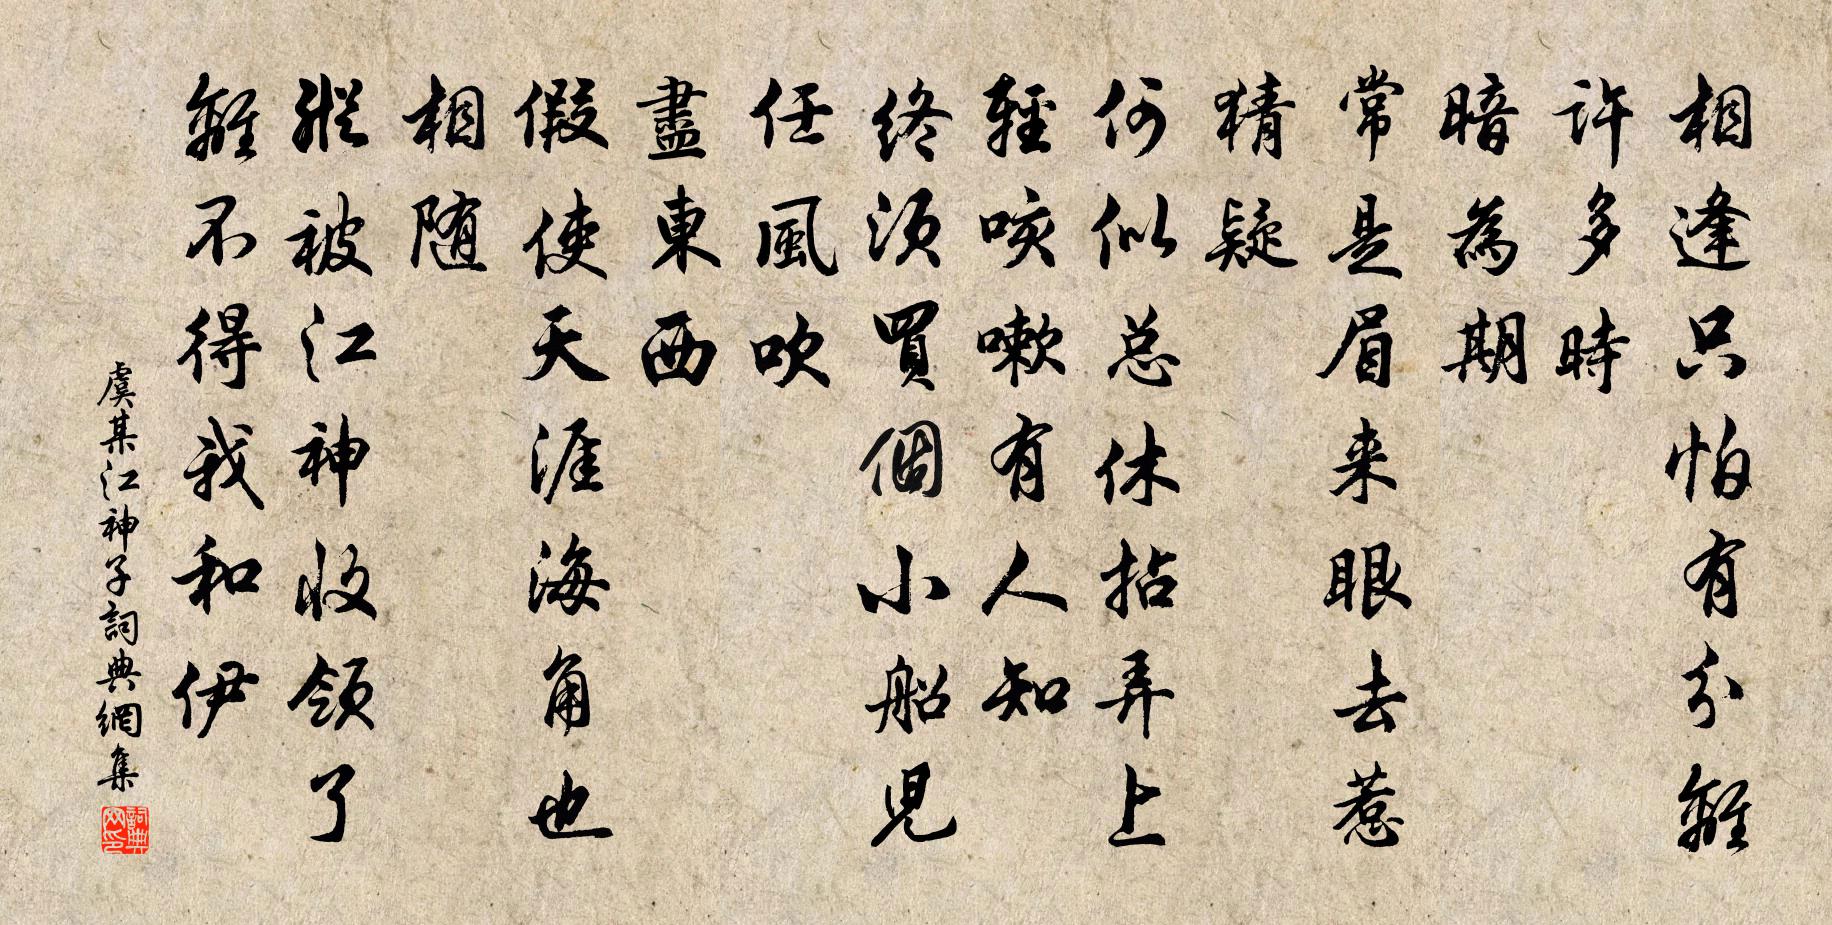 相逢只怕有分離
許多時
暗為期
常是眉来眼去惹
猜疑
何似总休拈弄上
輕咳嗽有人知
终須買個小船兒
任風吹
盡東西
假使天涯海角也
相随
縱被江神收領了
離不得我和伊
虞某江神子詞典網集
詞典网印